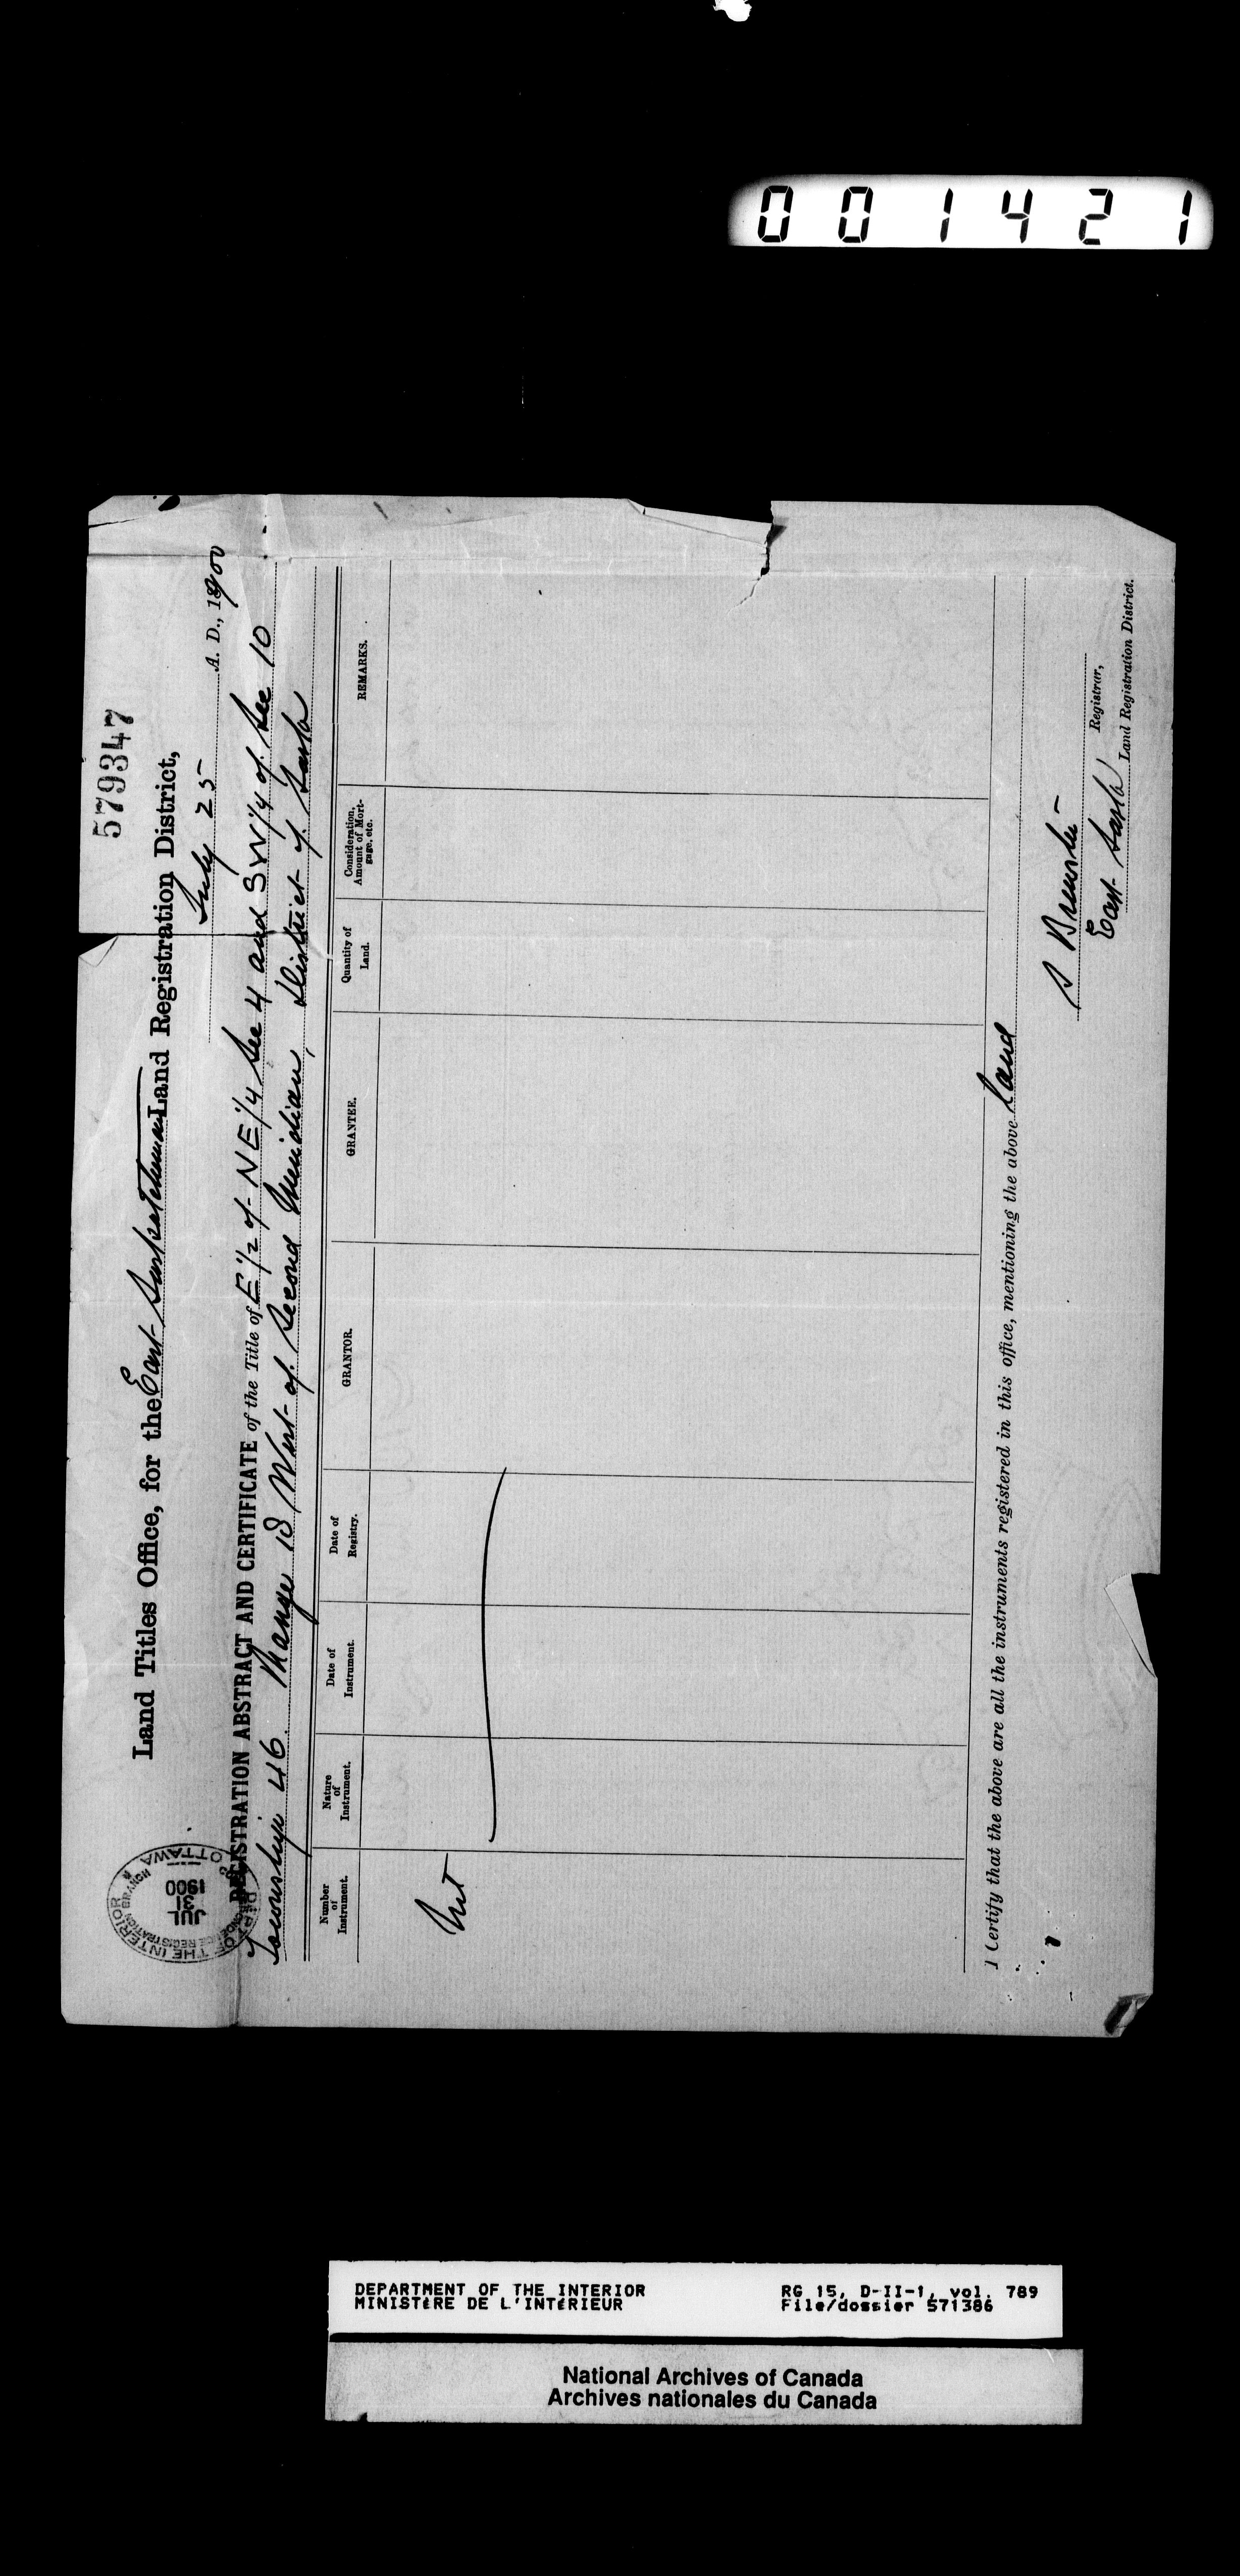 001421
579347
Land Titles Office, for the East Saskatchewan Land Registration District,
July 25 A. D., 1900
DEPT OF THE INTERIOR
JUL
31
1900
OTTAWA
REGISTRATION ABSTRACT AND CERTIFICATE of the Title of E 1/2 of NE 1/4 Sec 4 and SW 1/4 of Sec 10
Township 46 Range 18 West of Second Meridian, District of Sask
Number of Instrument. Nature of Instrument. Date of Instrument. Date of Registry. GRANTOR. GRANTEE. Quantity of Land. Consideration, Amount of Mortgage, etc. REMARKS.
I Certify that the above are all the instruments registered in this office, mentioning the above Land
S Brewster
Registrar,
East Sask Land Registration District.
DEPARTMENT OF THE INTERIOR RG 15, D-II-1, vol. 789
MINISTÈRE DE L'INTÉRIEUR File/dossier 571386
National Archives of Canada
Archives nationales du Canada